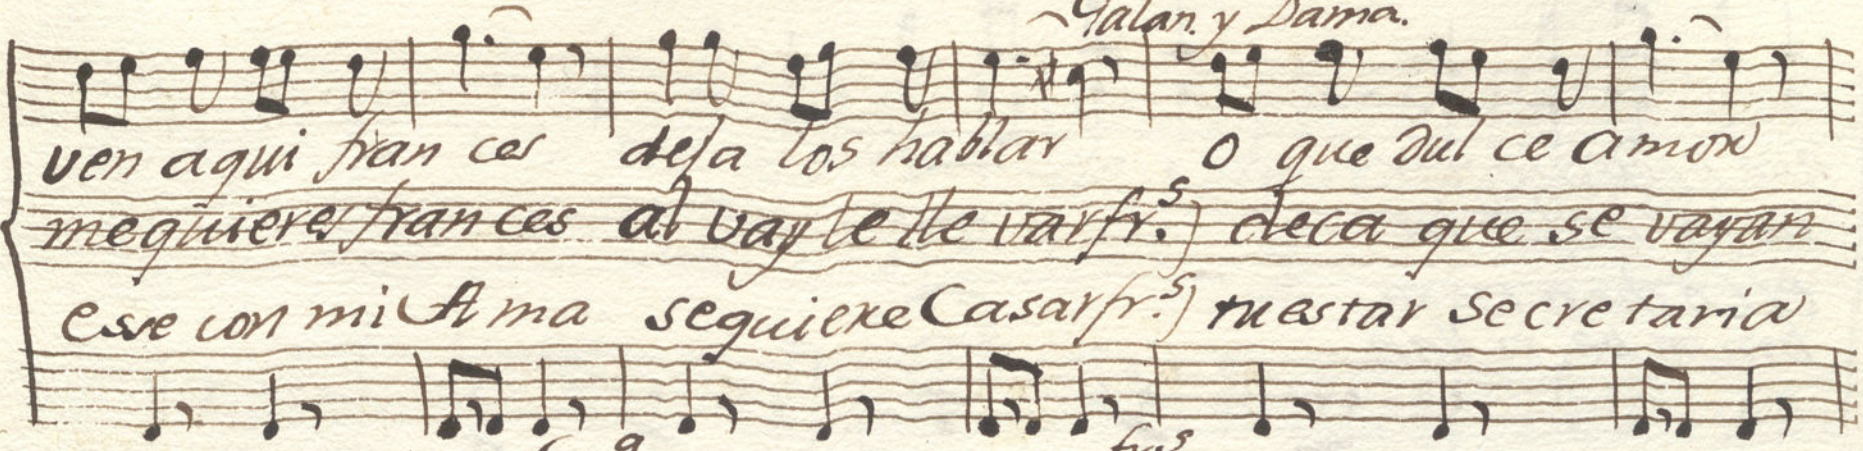 Galan. y Dama.
ven aqui fran ces deja los hablar o que dul ce amor
me quieres fran ces al vay le lle var fr.s) deca que se vayan
esse con mi Ama se quiere Casar fr.s) tu estar secretaria